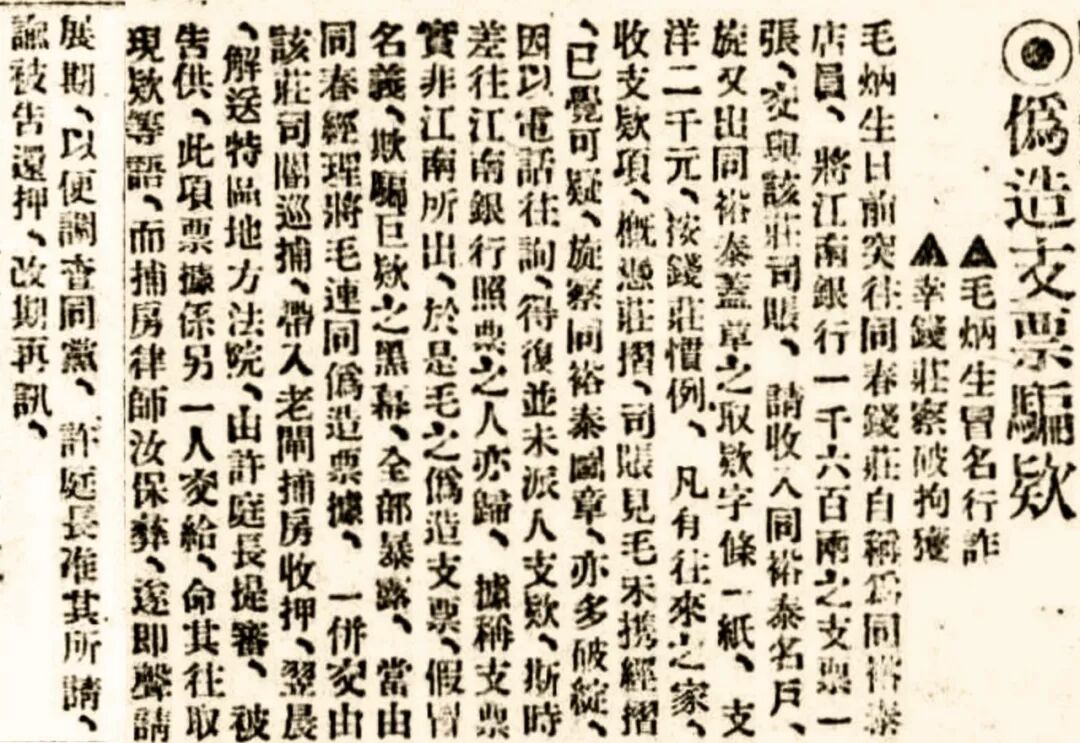 ◉偽造支票騙欵
▲毛炳生冒名行詐
▲幸錢莊察破拘獲
毛炳生日前突往同春錢莊自稱爲同裕泰
店員、將江南銀行一千六百兩之支票一
張、交與該莊司賬、請收入同裕泰名戶、
旋又出同裕泰蓋章之取欵字條一紙、支
洋二千元、按錢莊慣例、凡有往來之家、
收支欵項、概憑莊摺、司賬見毛未携經摺
、已覺可疑、旋察同裕泰圖章、亦多破綻、
因以電話往詢、得復並未派人支欵、斯時
差往江南銀行照票之人亦歸、據稱支票
實非江南所出、於是毛之僞造支票、假冒
名義、欺騙巨欵之黑幕、全部暴露、當由
同春經理將毛連同僞造票據、一併交由
該莊司閽巡捕、帶入老閘捕房收押、翌晨
、解送特區地方法院、由許庭長提審、被
告供、此項票據係另一人交給、命其往取
現欵等語、而捕房律師汝保彝、遂即聲請
展期、以便調查同黨、許庭長准其所請、
諭被告還押、改期再訊、